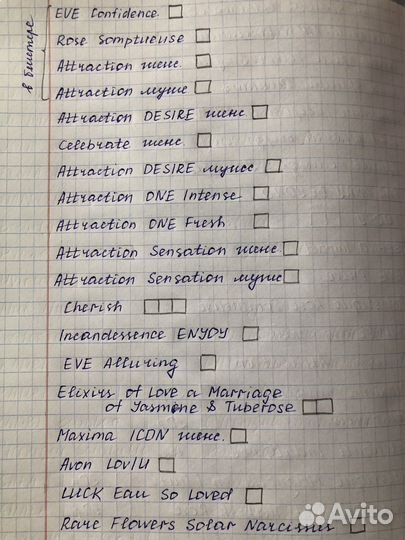 в блистере
EVE Confidence
Rose Somptueuse
Attraction женс.
Attraction муже
Attraction DESIRE женс
Celebrate женс.
Attraction DESIRE мужсс
Attraction ONE Intense
Attraction ONE Fresh
Attraction Sensation женс
Attraction Sensation мужс
Cherish
Incandessence ENYOY
EVE Alluring
Elixirs of Love a Marriage
of Jasmone & Tuberose
Maxima ICON женс.
Avon Lov/U
LUCK Eau So Loved
Rare Flowers Solar Narcissus
Avito